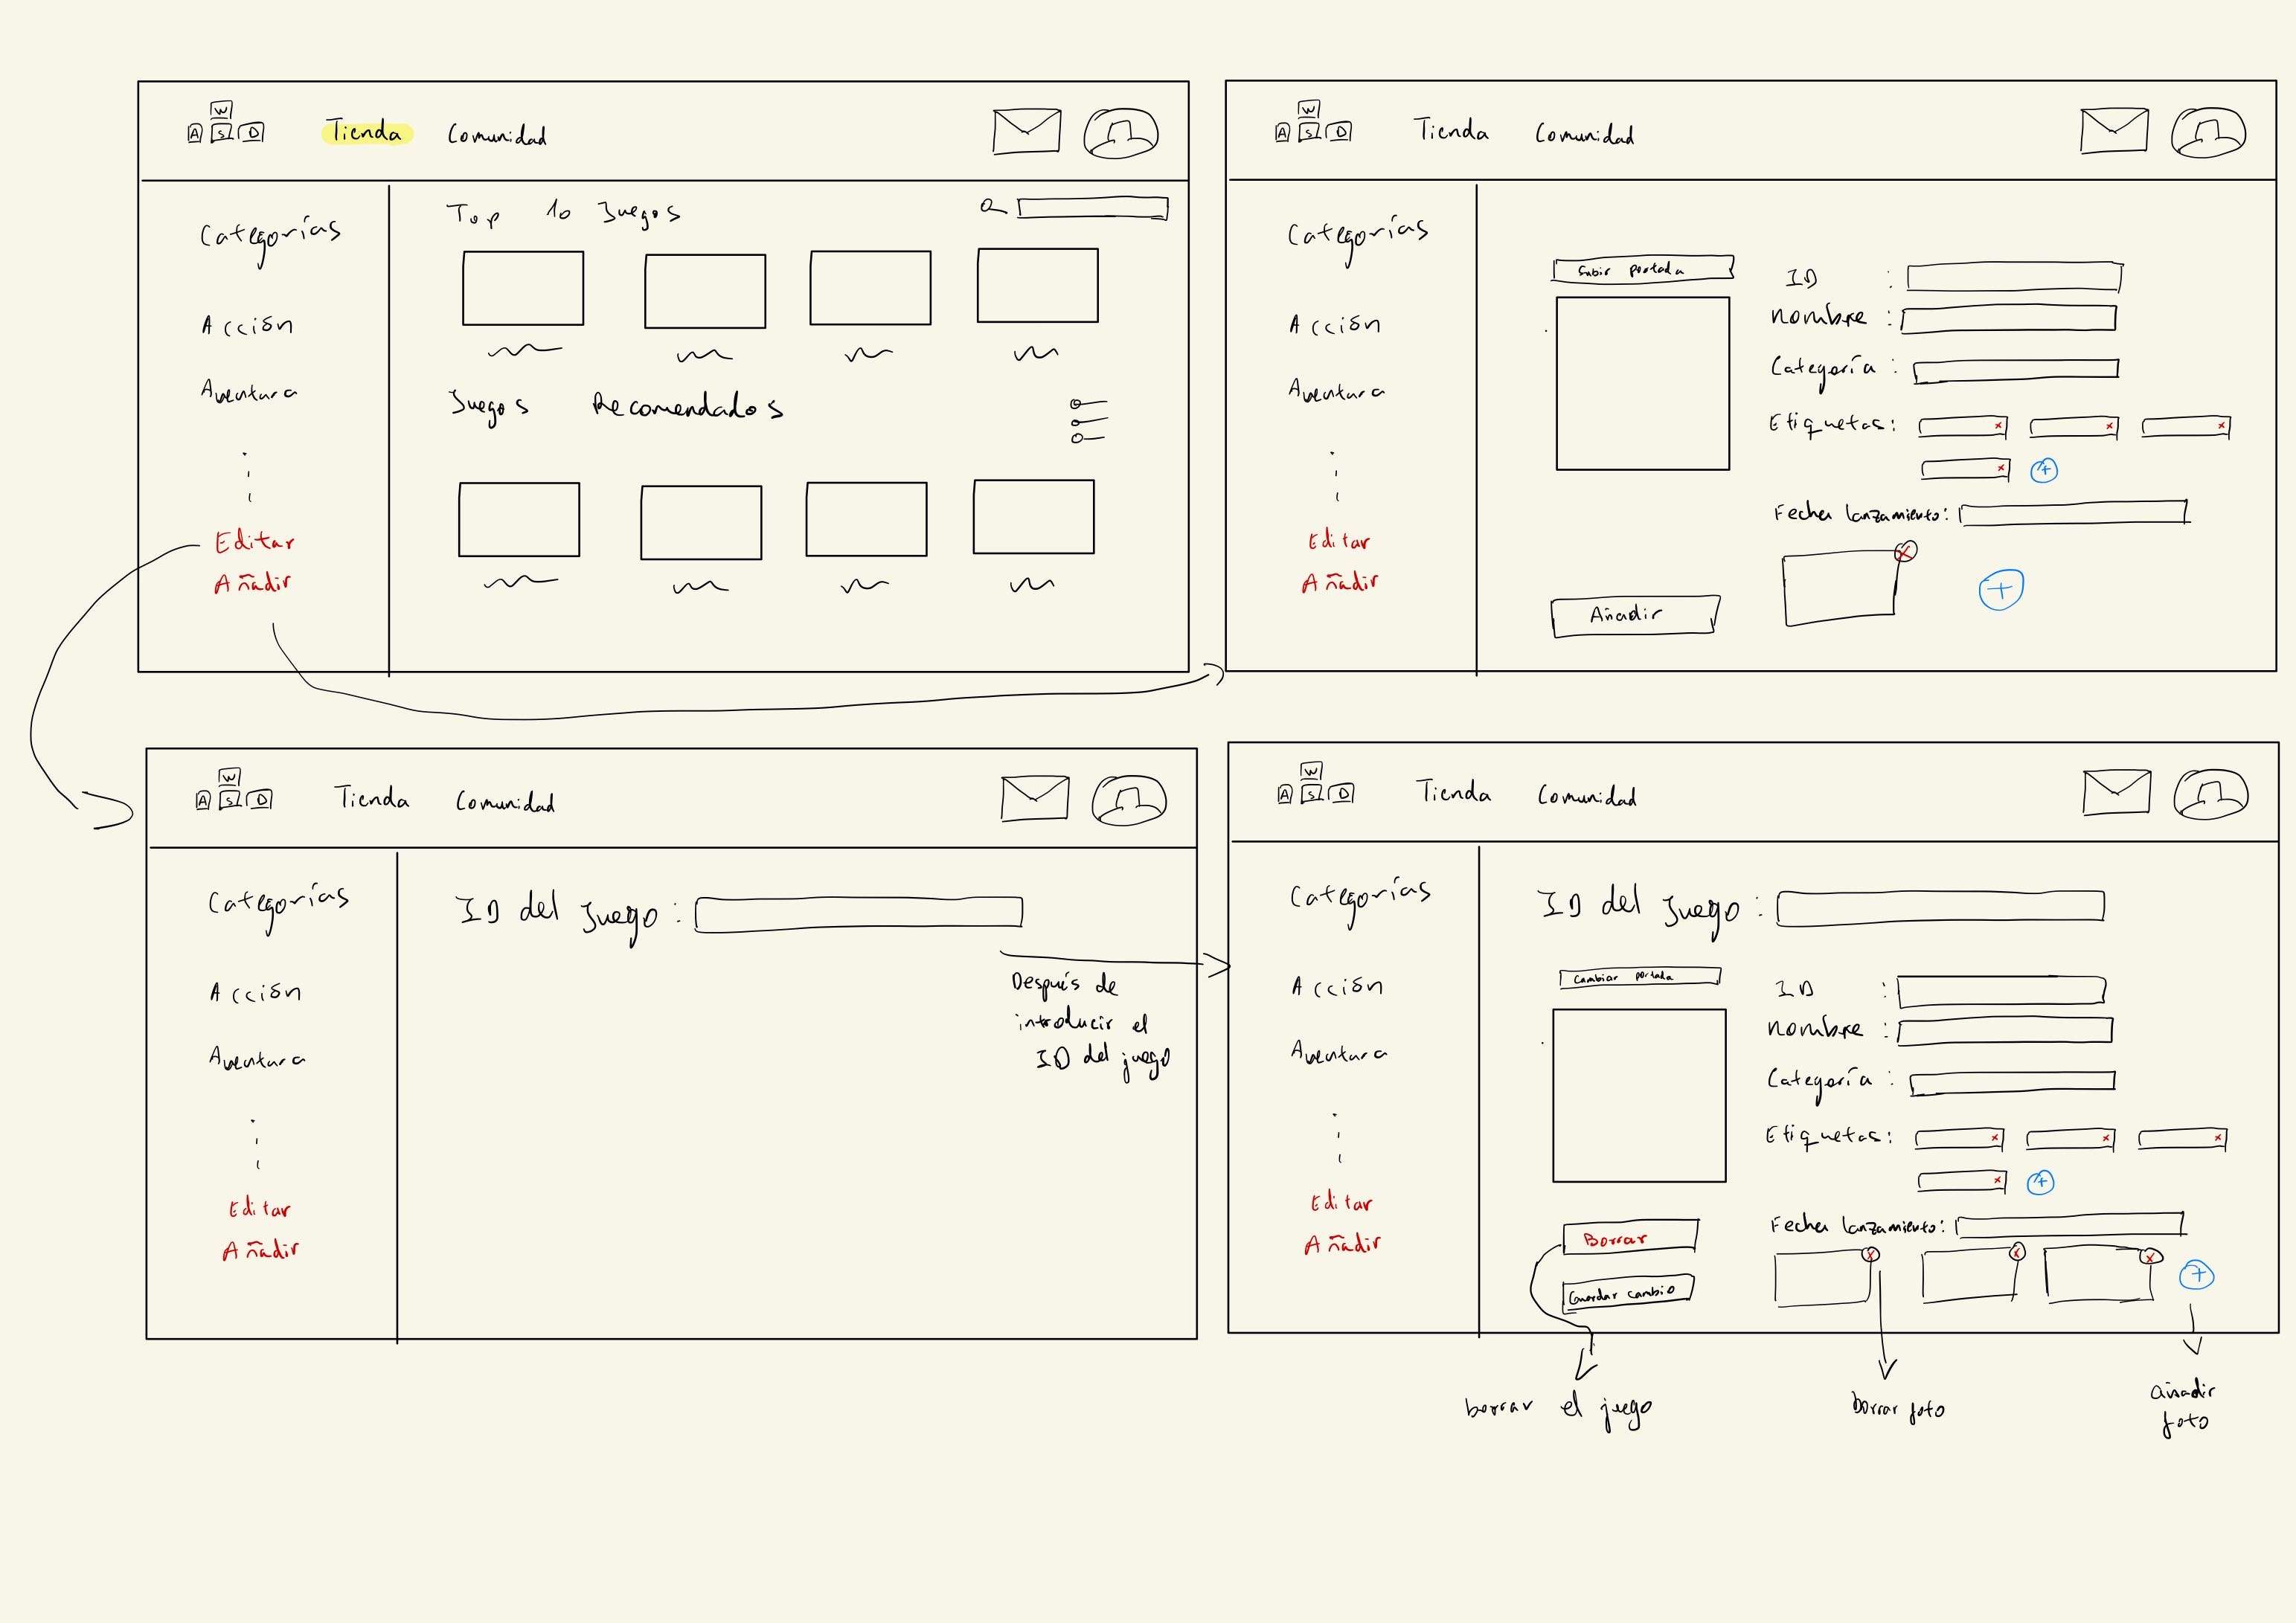 W
A S D Tienda Comunidad
Categorías
Acción
Aventura
Editar
Añadir
Top 10 Juegos
Juegos Recomendados
W
A S D Tienda Comunidad
Categorías
Acción
Aventura
Editar
Añadir
Subir portada
Añadir
ID :
Nombre :
Categoría :
Etiquetas: x x x
x +
Fecha lanzamiento:
x
+
W
A S D Tienda Comunidad
Categorías
Acción
Aventura
Editar
Añadir
ID del Juego :
Después de
introducir el
ID del juego
W
A S D Tienda Comunidad
Categorías
Acción
Aventura
Editar
Añadir
ID del Juego :
Cambiar portada
Borrar
Guardar cambio
ID :
Nombre :
Categoría :
Etiquetas: x x x
x +
Fecha lanzamiento:
x x x +
borrar el juego
borrar foto
añadir
foto